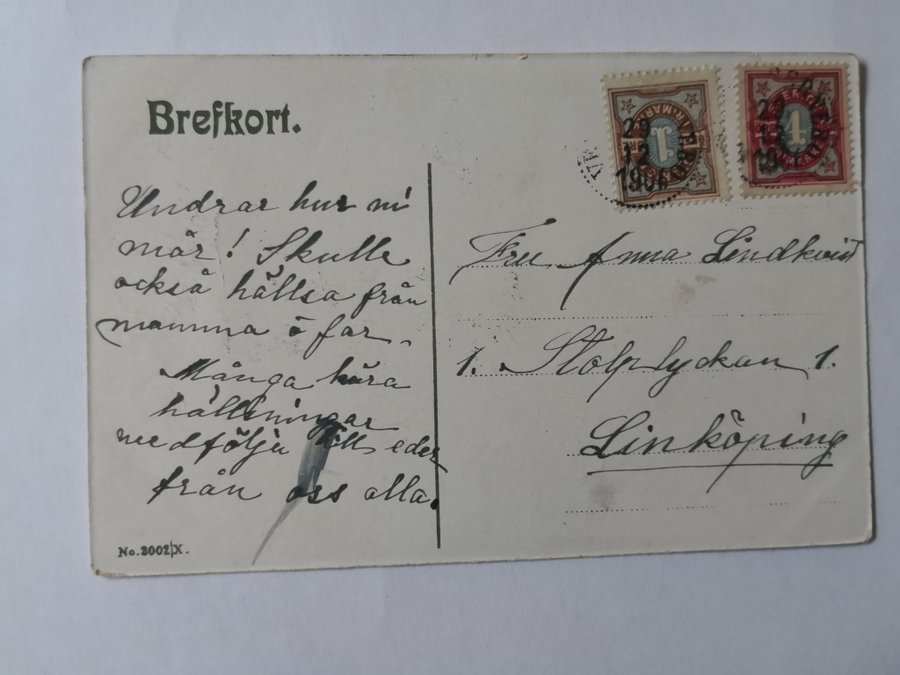 Brefkort.
Undrar hur ni
mår! Skulle
också hällsa från
mamma ö far.
Många kära
hällsningar
medfölja till eder
från oss alla.
No. 3002/X.
29
12
1906
SVERIGE
4
FRIMÄRKE
29
12
190
1
FRIMÄRKE
Fru Anna Lindkvist
1. Stolplyckan 1.
Linköping